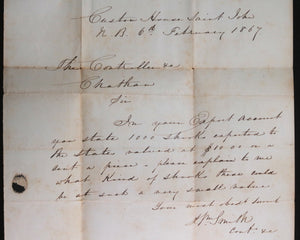 Custom House Saint John
N B. 6th February 1867
The Controller &c
Chatham
Sir
In your Export Account
you state 1000 Shooks exported to
the States valued at $10.00 or 1
cent a piece - please explain to me
what kind of shooks these could
be at such a very small value
Your most obed Servt
Wm Smith
Cont. &c